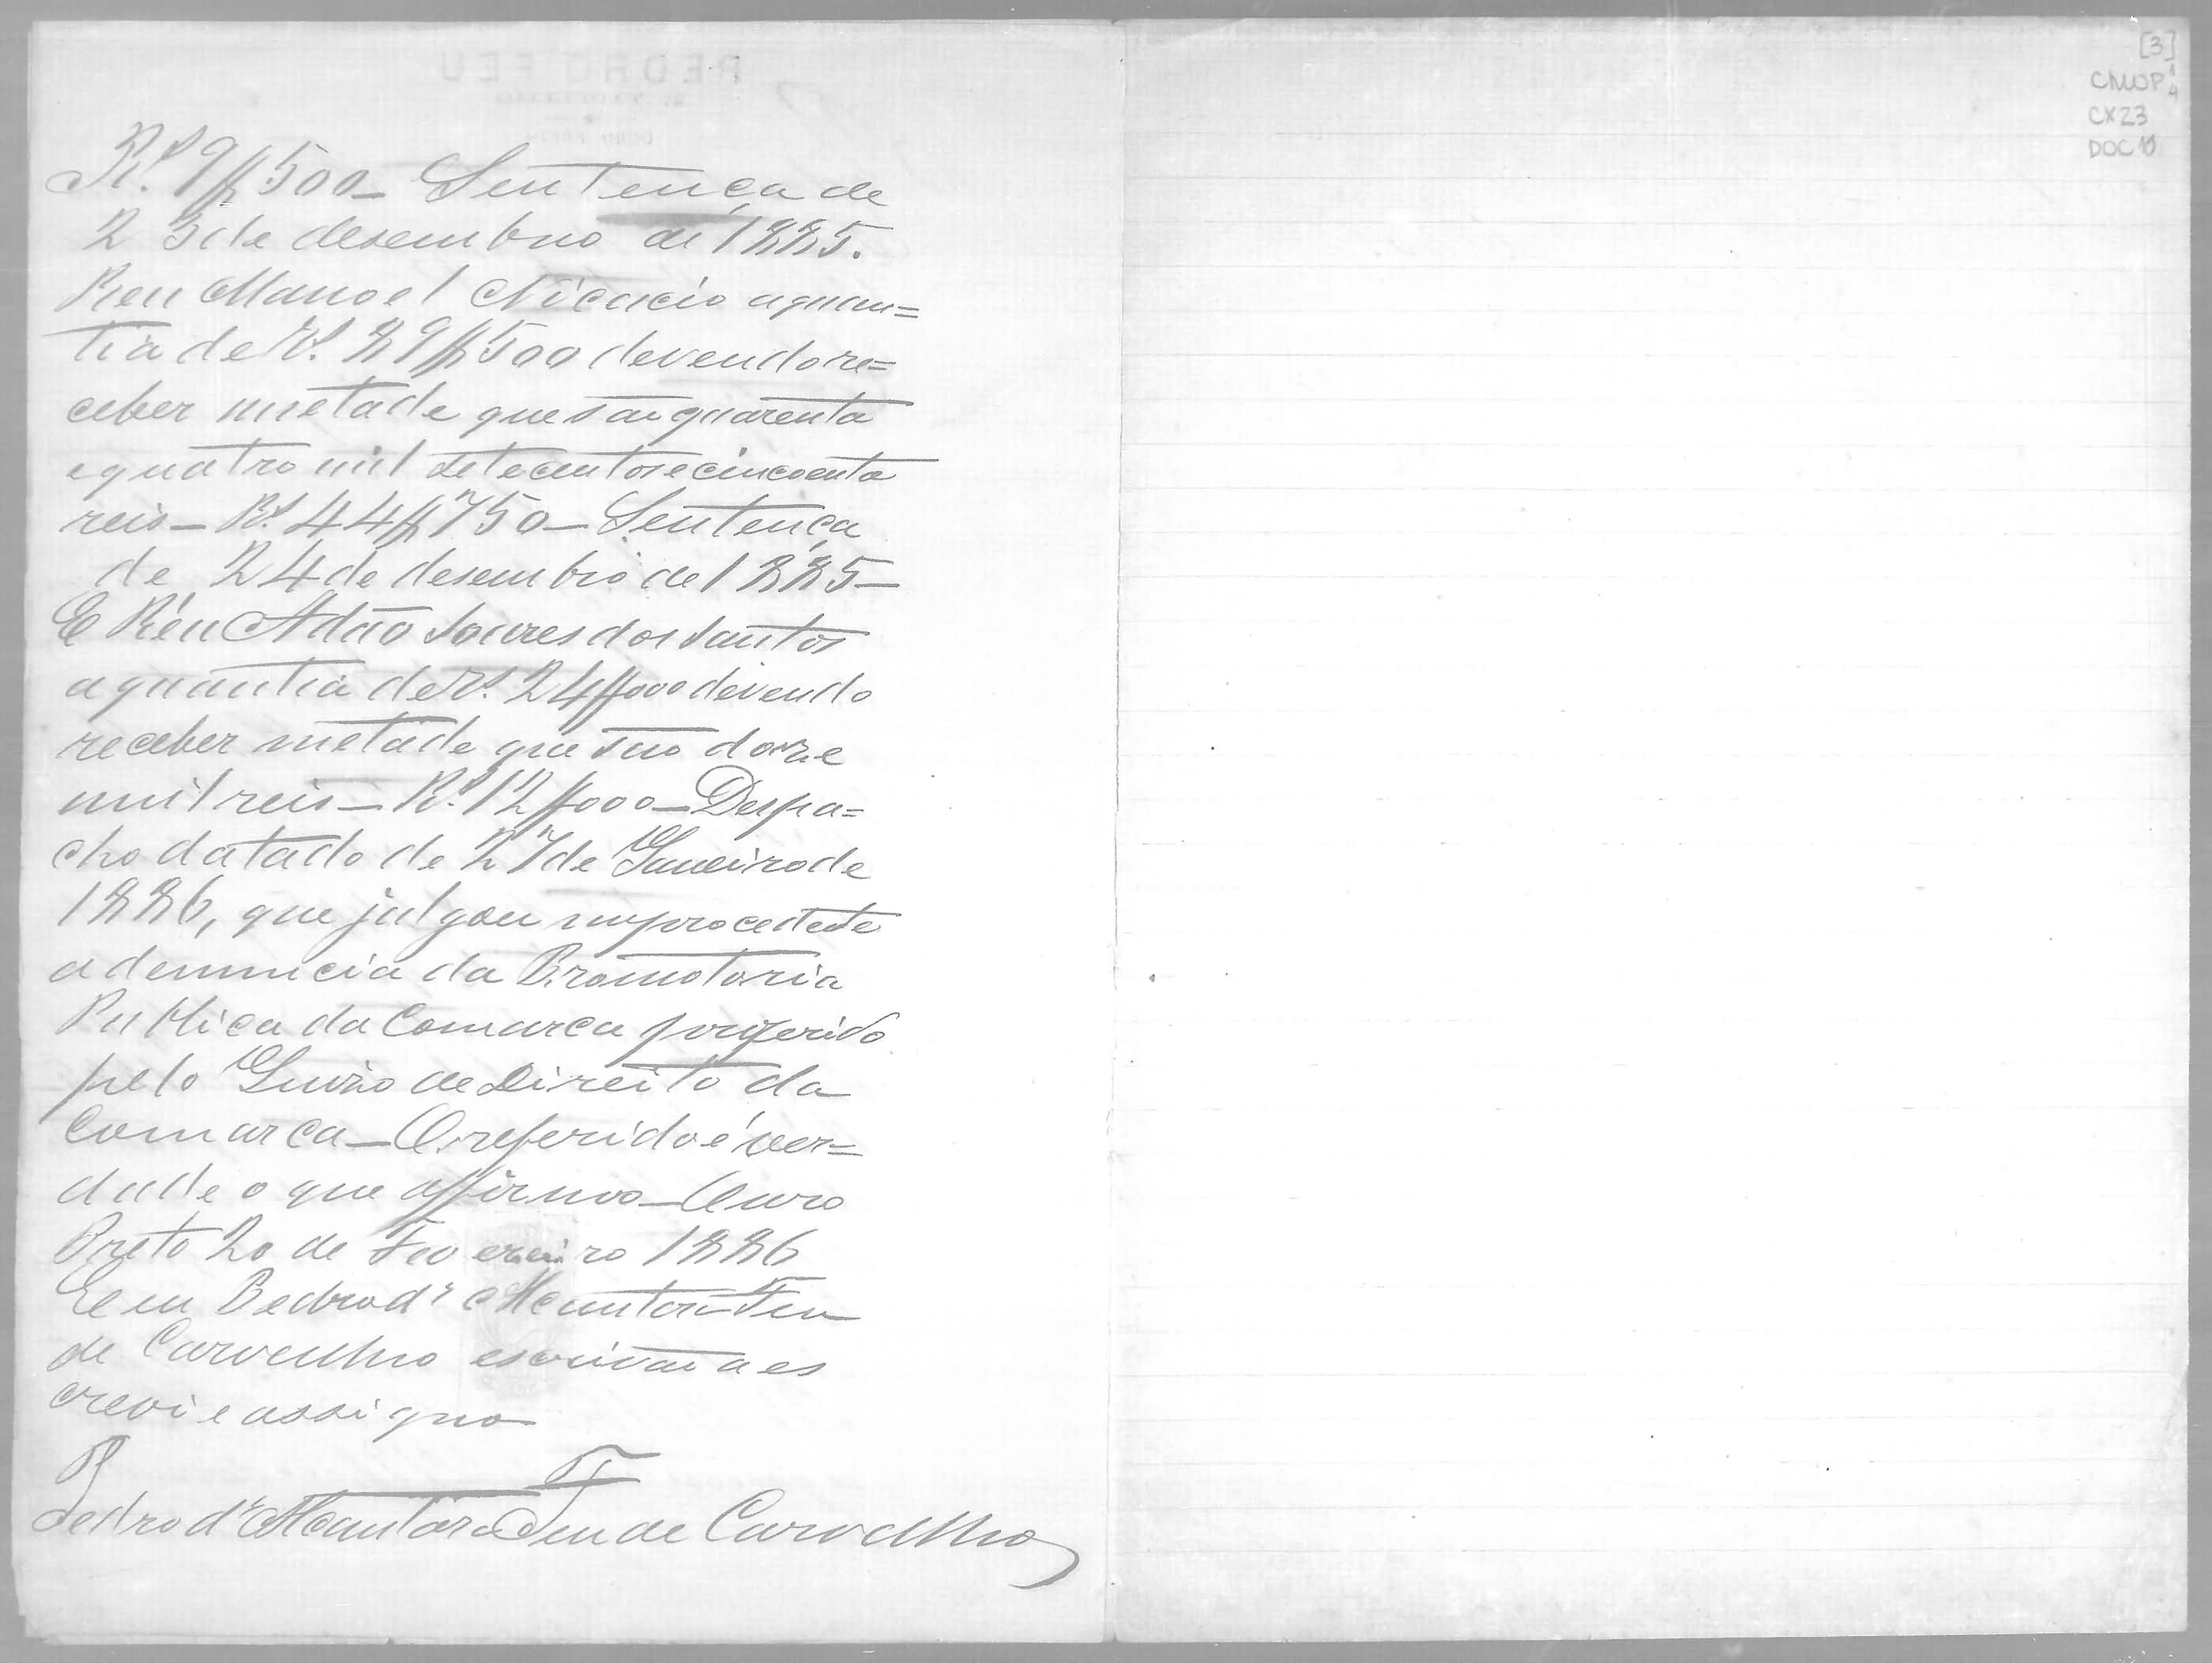 [3]
CMOP
CX23
DOC 10
Rs. 9$500 — Sentença de
23 de desembro de 1885.
Reu Manoel Nicacio a quan=
tia de Rs. 89$500 devendo re=
ceber metade que são quarenta
e quatro mil setecentos e cincoenta
reis — Rs. 44$750 — Sentença
de 24 de desembro de 1885 —
E Réu Adão Soares dos Santos
a quantia de Rs. 24$000 devendo
receber metade que são doze
mil reis — Rs. 12$000 — Despa=
cho datado de 27 de Janeiro de
1886, que julgou improcedente
a denuncia da Promotoria
Publica da Comarca proferido
pelo Juizo de Direito da
Comarca — O referido é ver=
dade o que affirmo — Ouro
Preto 20 de Fevereiro 1886
Eu Pedro d'Alcantara Feu
de Carvalho escrivão a es
crevi e assigno
Pedro d'Alcantara Feu de Carvalho